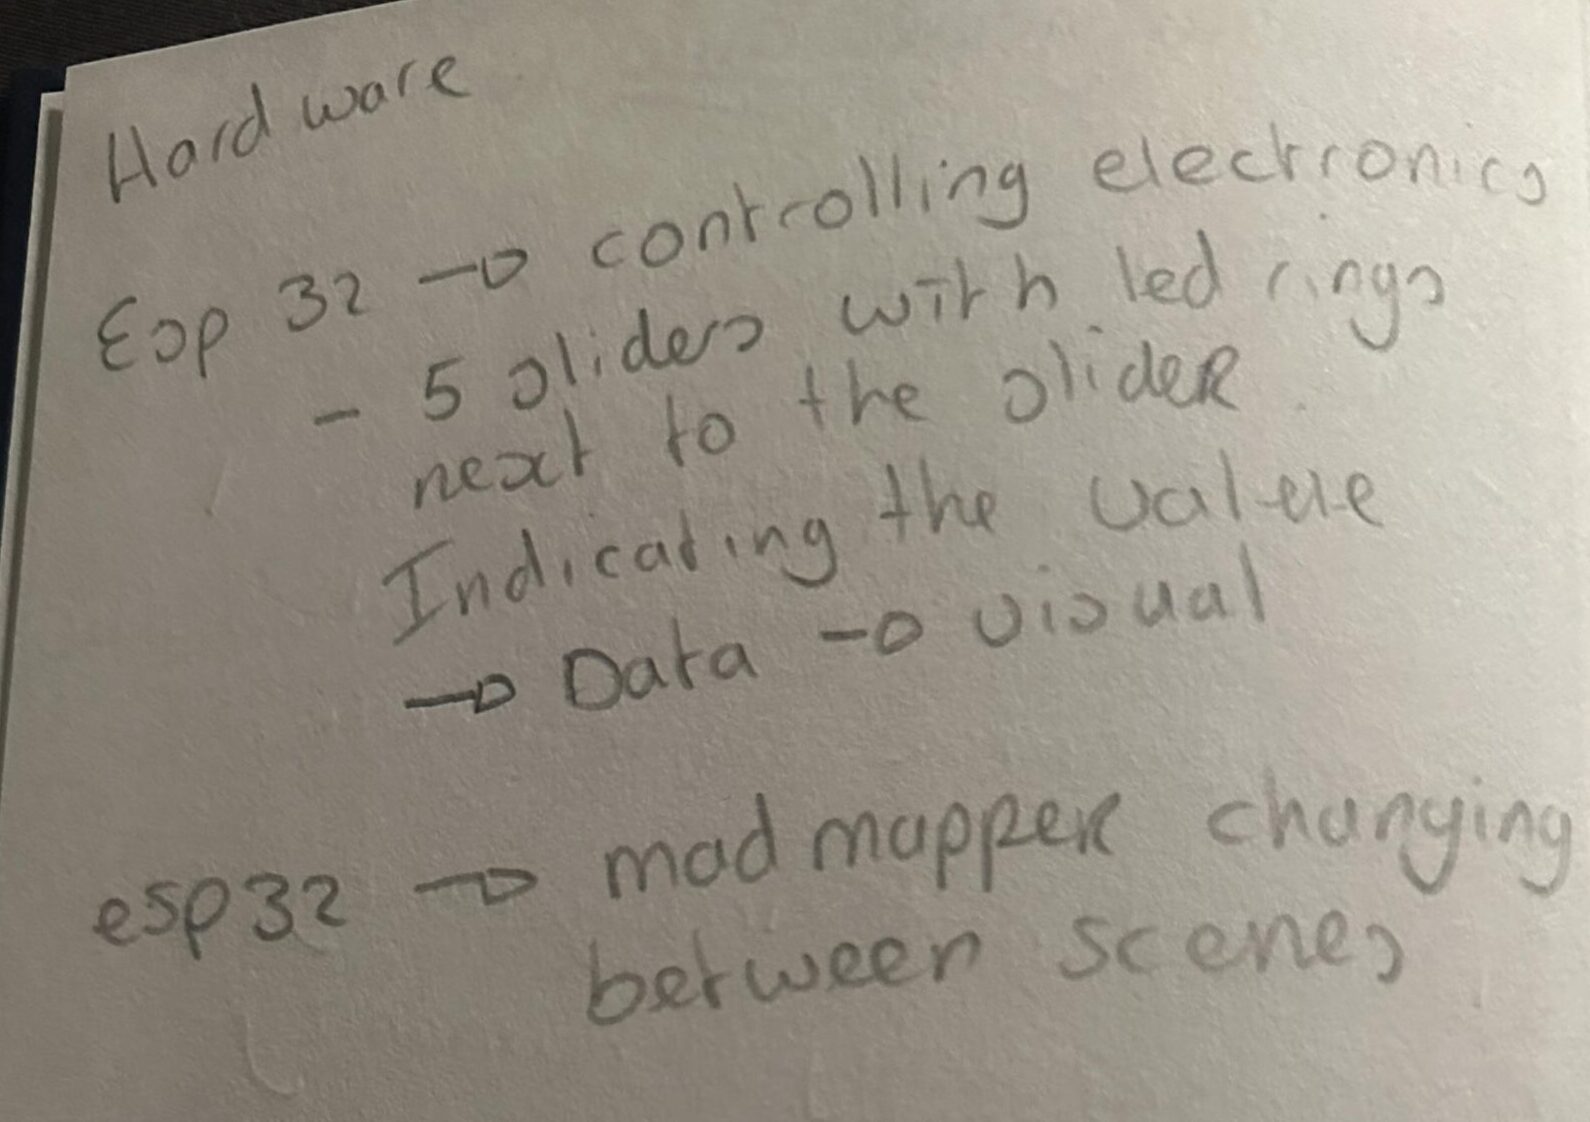 Hardware
Esp 32 → controlling electronics
- 5 sliders with led rings
next to the slider
Indicating the value
→ Data → visual
esp32 → mad mapper changing
between scenes